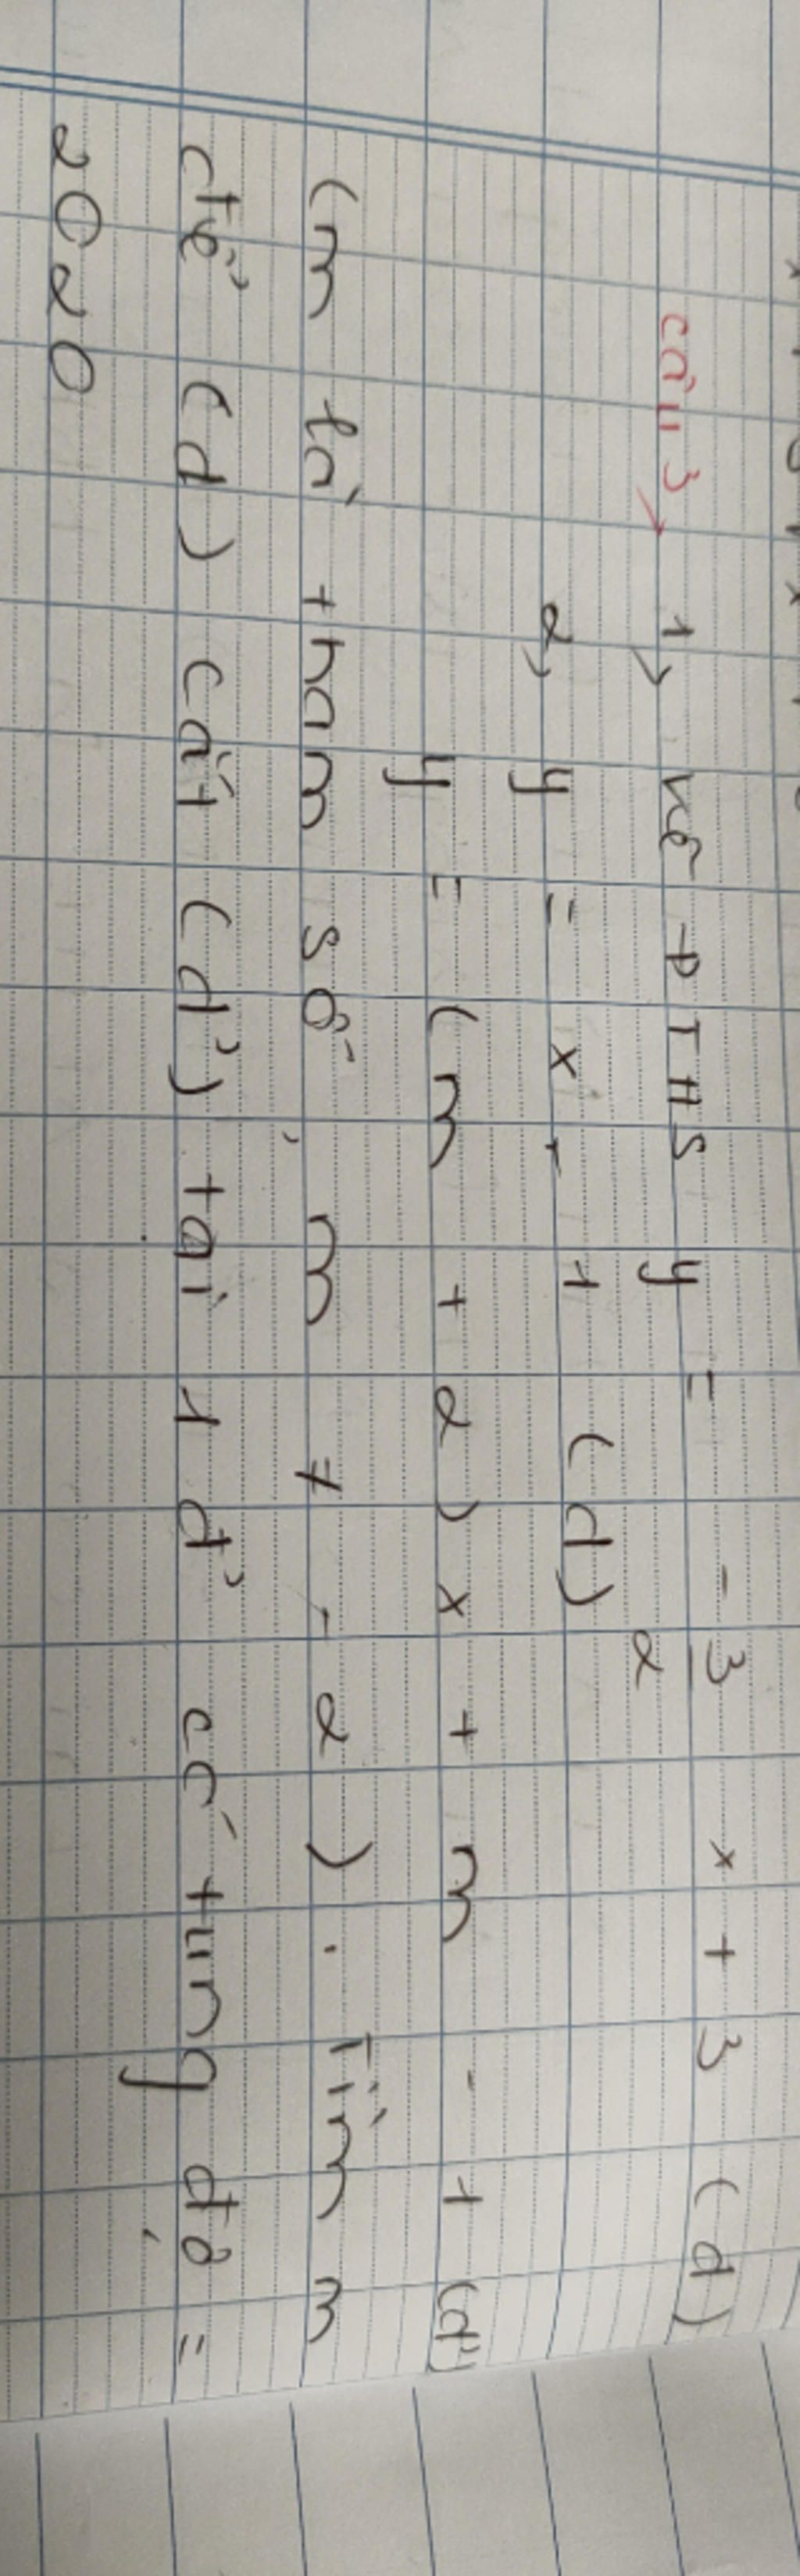 câu 3, 1, vẽ ĐTHS y = -3/2 x + 3 (d)
2, y = x - 1 (d)
y = (m + 2)x + m - 1 (d')
(m là tham số, m ≠ -2). Tìm m
để (d) cắt (d') tại 1 đ' có tung độ =
2020